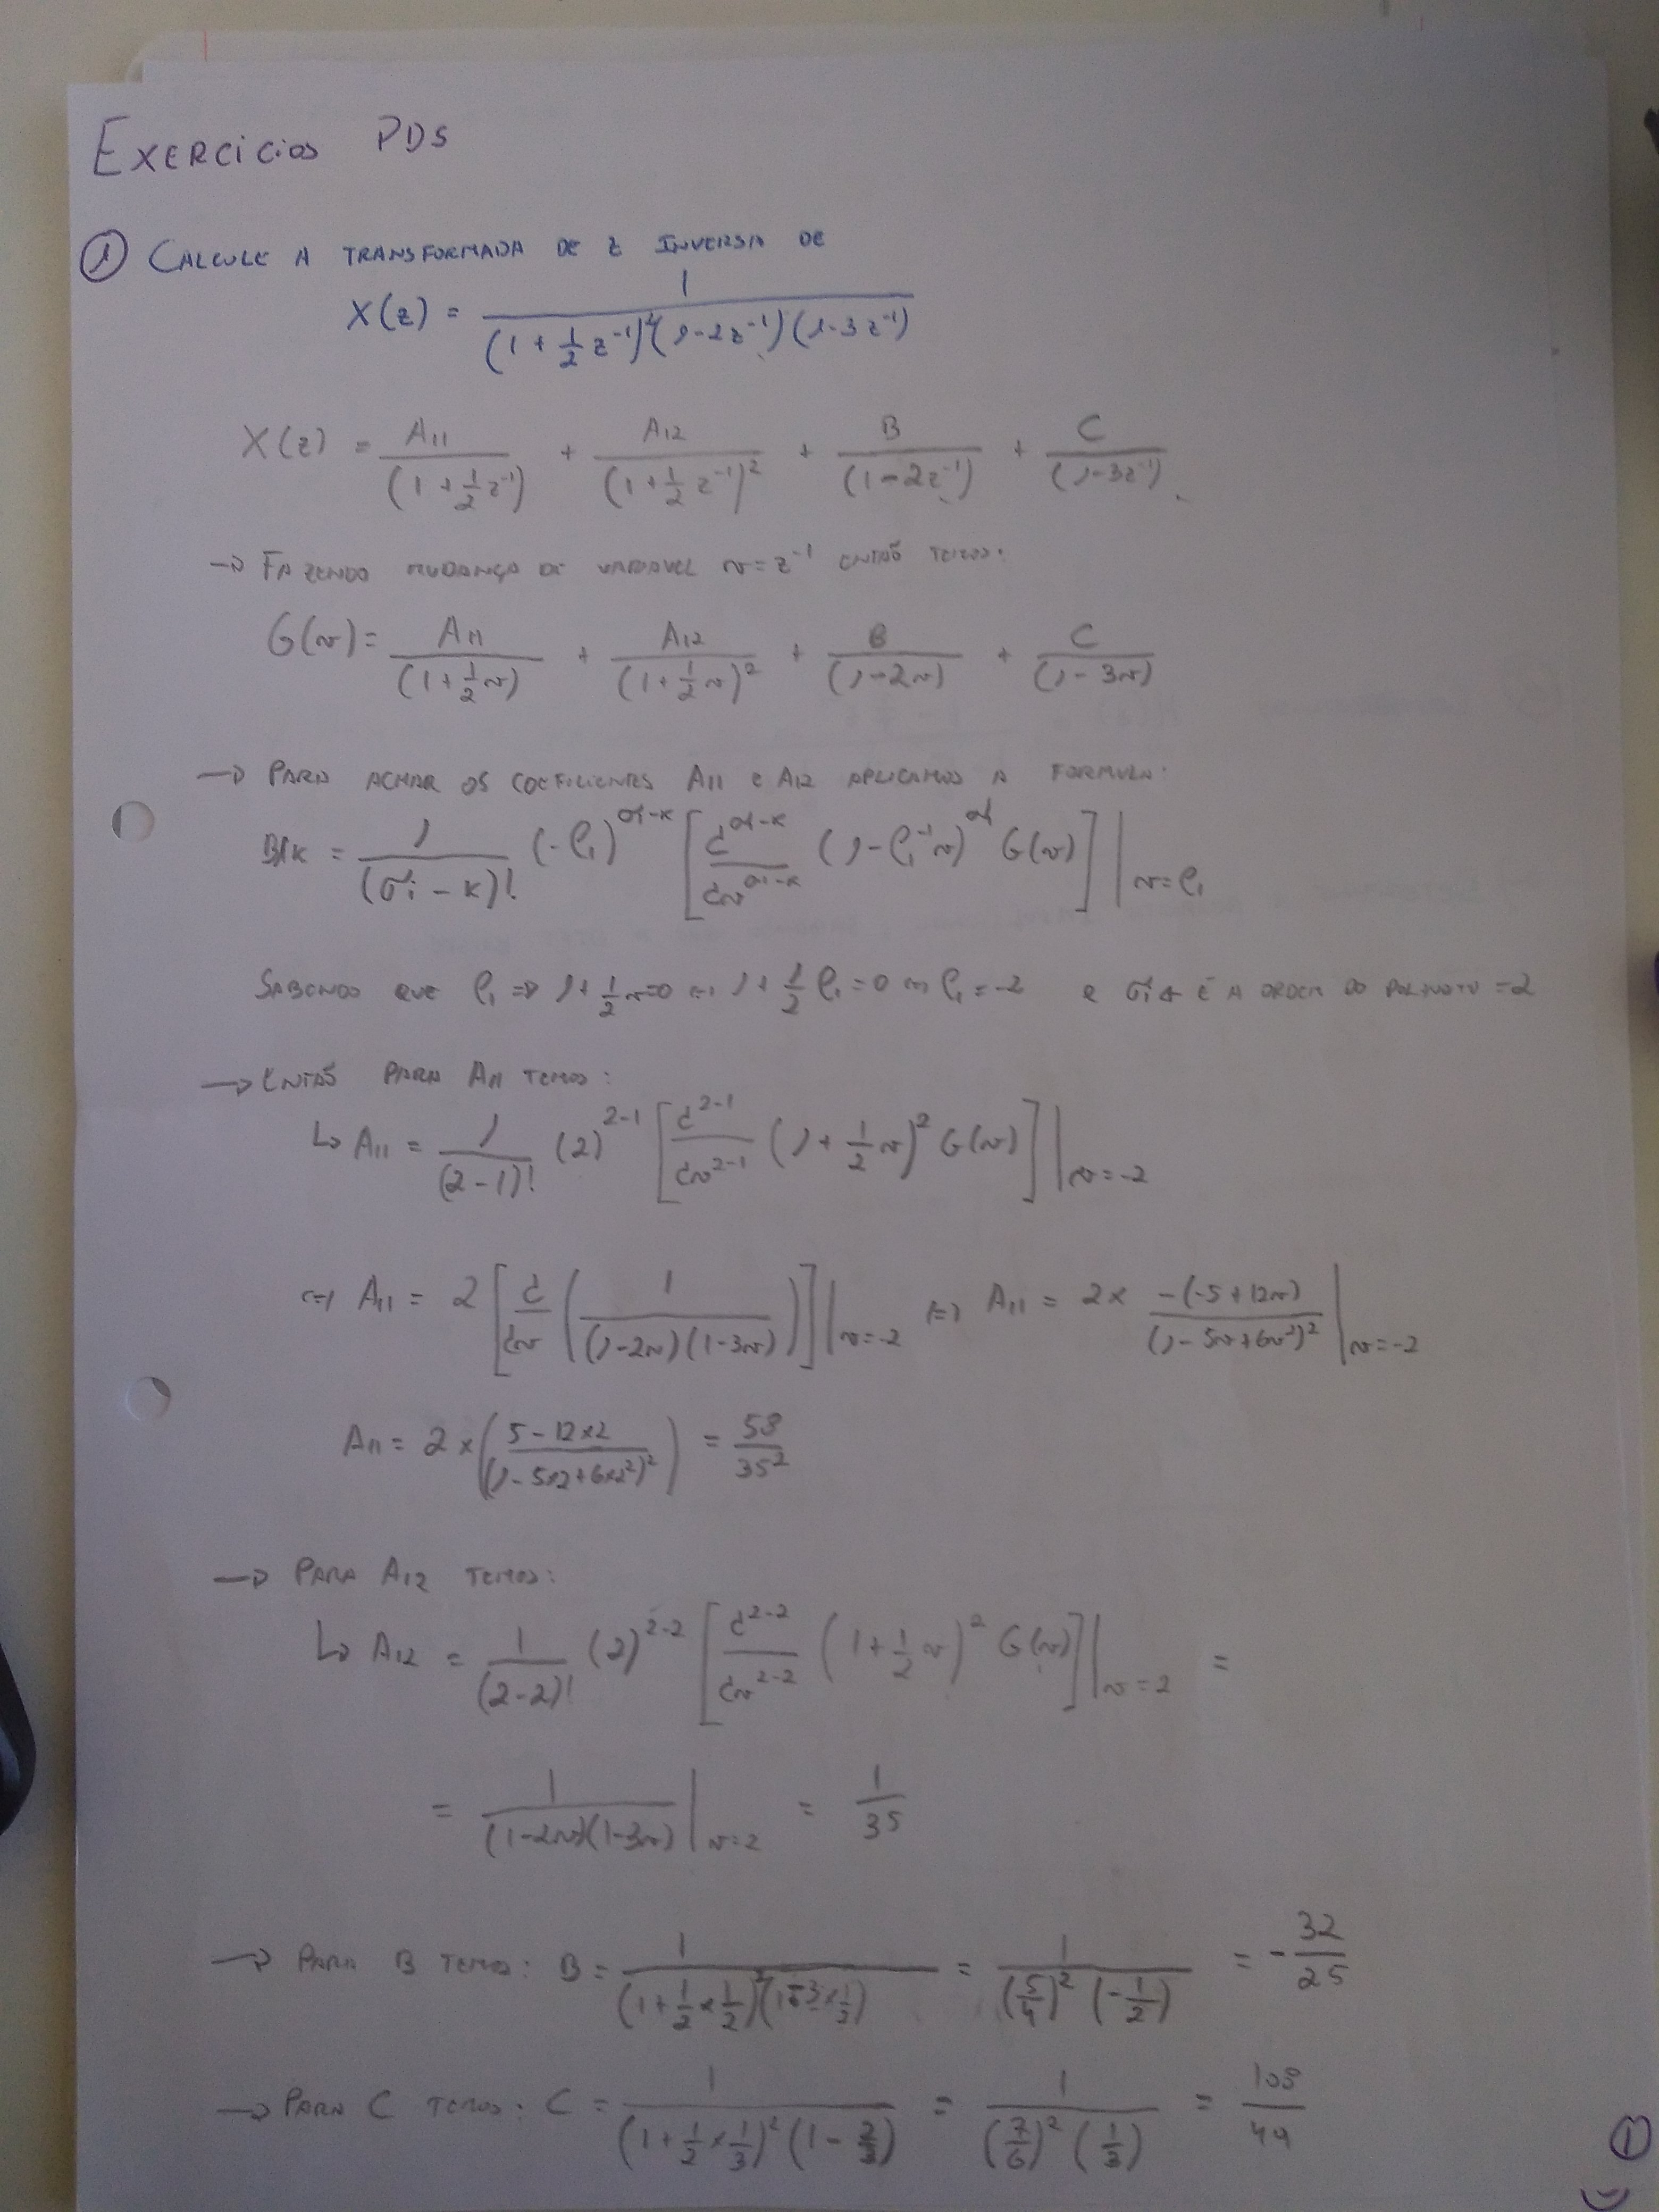 EXERCÍCIOS PDS
① CALCULE A TRANSFORMADA DE Z INVERSA DE
X(z) = 1 / ((1 + 1/2 z⁻¹)² (1 - 2z⁻¹) (1 - 3z⁻¹))
X(z) = A11 / (1 + 1/2 z⁻¹) + A12 / (1 + 1/2 z⁻¹)² + B / (1 - 2z⁻¹) + C / (1 - 3z⁻¹)
→ FAZENDO MUDANÇA DE VARIAVEL v = z⁻¹ ENTÃO TEMOS:
G(v) = A11 / (1 + 1/2 v) + A12 / (1 + 1/2 v)² + B / (1 - 2v) + C / (1 - 3v)
→ PARA ACHAR OS COEFICIENTES A11 E A12 APLICAMOS A FORMULA:
Bik = 1 / (σi - k)! (-ρ1)^(σi-k) [d^(σi-k) / dv^(σi-k) (1 - ρ1⁻¹ v)^σi G(v)] | v = ρ1
SABENDO QUE ρ1 => 1 + 1/2 v = 0 <=> 1 + 1/2 ρ1 = 0 <=> ρ1 = -2 e σi É A ORDEM DO = 2
→ ENTÃO PARA A11 TEMOS:
↳ A11 = 1 / (2-1)! (2)^(2-1) [d^(2-1) / dv^(2-1) (1 + 1/2 v)² G(v)] | v = -2
<=> A11 = 2 [d/dv (1 / ((1-2v)(1-3v)))] | v = -2 <=> A11 = 2 × -(-5 + 12v) / (1 - 5v + 6v²)² | v = -2
A11 = 2 × ((5 - 12×2) / (1 - 5×2 + 6×2²)²) = 58 / 35²
→ PARA A12 TEMOS:
↳ A12 = 1 / (2-2)! (2)^(2-2) [d^(2-2) / dv^(2-2) (1 + 1/2 v)² G(v)] | v = 2 =
= 1 / ((1-2v)(1-3v)) | v = 2 = 1 / 35
→ PARA B TEMOS: B = 1 / ((1 + 1/2 × 1/2)² (1 - 3 × 1/2)) = 1 / ((5/4)² (-1/2)) = - 32/25
→ PARA C TEMOS: C = 1 / ((1 + 1/2 × 1/3)² (1 - 2/3)) = 1 / ((7/6)² (1/3)) = 108/49
①